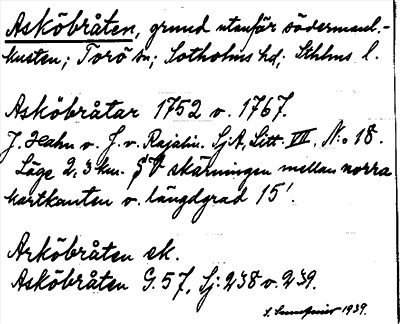 Asköbråten, grund utanför södermanl.-
kusten; Torö sn; Sotholms hd; Sthlms l.
Asköbråtar 1752 o. 1767.
J. Hahn o. J. v. Rajalin. SjA, Litt. VII, N:o 18.
Läge 2,3 km. SV skärningen mellan norra
kartkanten o. längdgrad 15'.
Asköbråten ek.
Asköbråten G. 57, Sj: 238 o. 239.
1939.